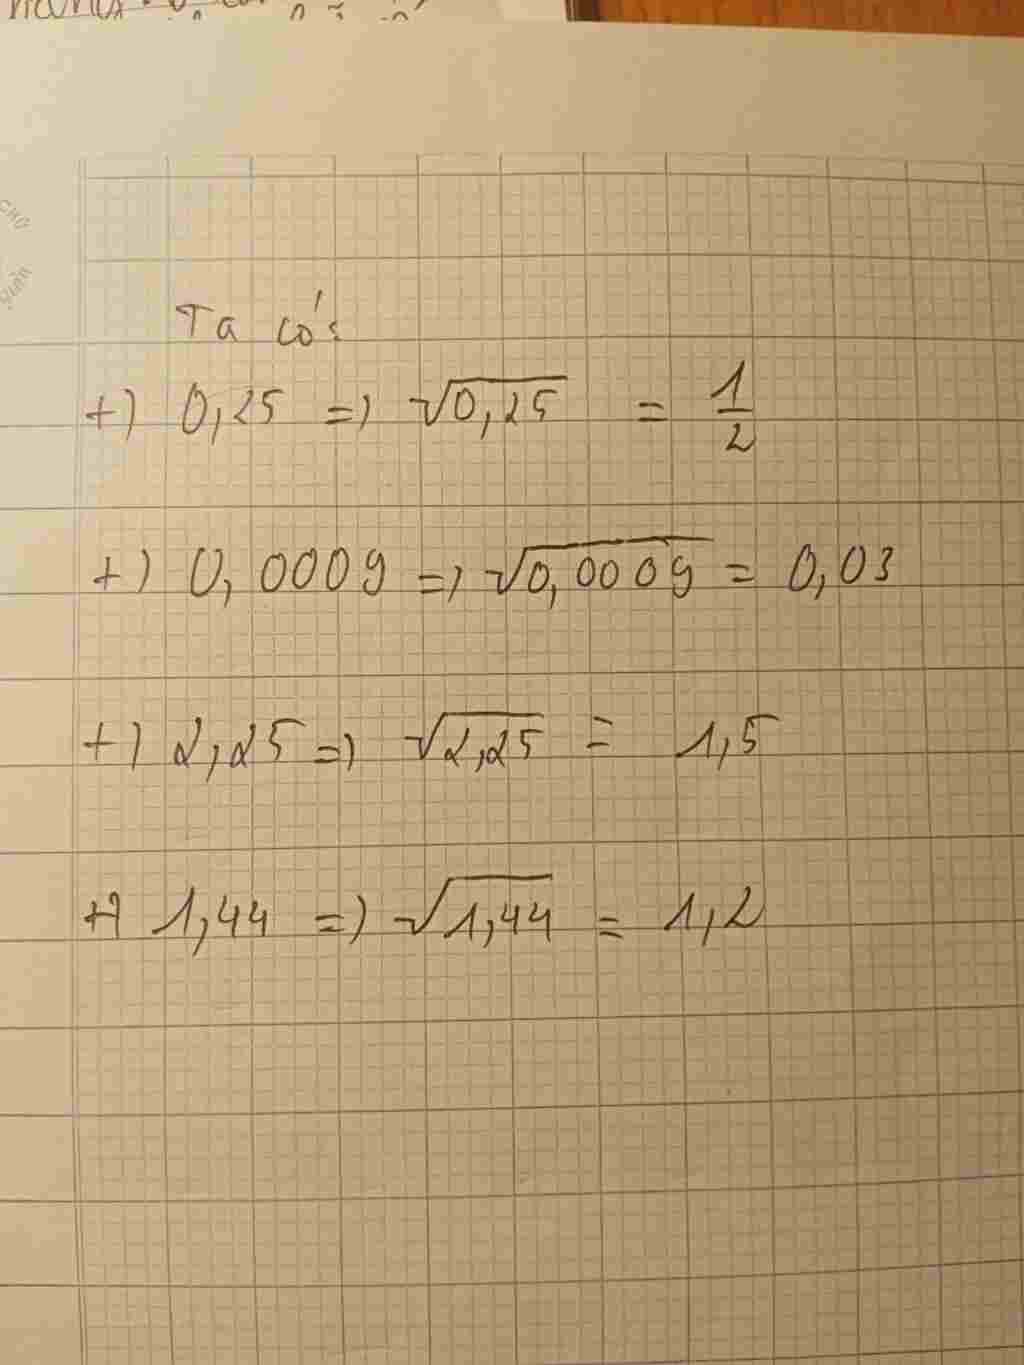 Ta có:
+) 0,25 => √0,25 = 1/2
+) 0,0009 => √0,0009 = 0,03
+) 2,25 => √2,25 = 1,5
+) 1,44 => √1,44 = 1,2